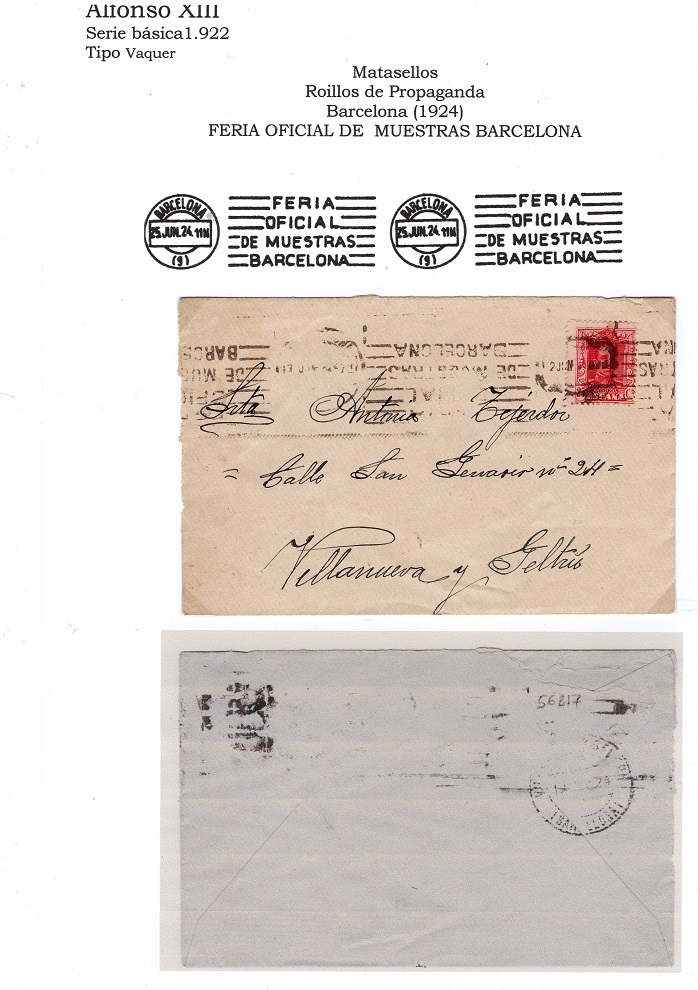 Alfonso XIII
Serie básica1.922
Tipo Vaquer
Matasellos
Roillos de Propaganda
Barcelona (1924)
FERIA OFICIAL DE MUESTRAS BARCELONA
BARCELONA
25.JUN.24.11M
(9)
FERIA
OFICIAL
DE MUESTRAS
BARCELONA
BARCELONA
25.JUN.24.11M
(9)
FERIA
OFICIAL
DE MUESTRAS
BARCELONA
BARCELONA
DE MUESTRAS
Srta Antonia Tejedor
= Calle San Gervasio nº 24 =
Villanueva y Geltrú
56817
(BARCELONA)